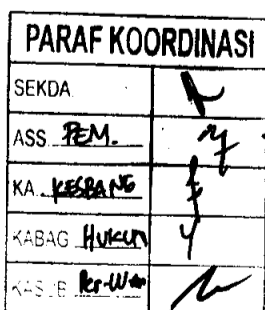 PARAF KOORDINASI
SEKDA
ASS. PEM.
KA. KESBANG
KABAG HUKUM
KASUB Per-UU